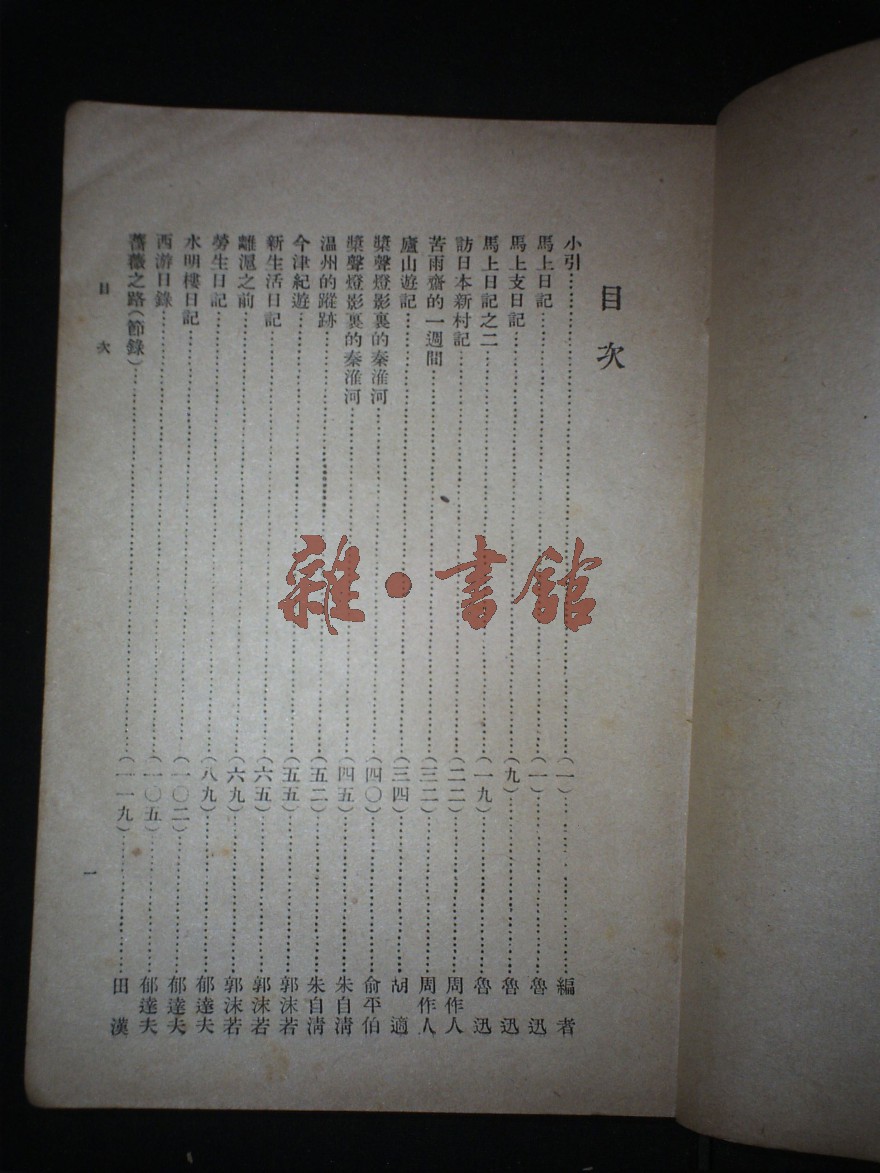 目次
小引……(一)……編者
馬上日記……(一)……魯迅
馬上支日記……(九)……魯迅
馬上日記之二……(一九)……魯迅
訪日本新村記……(二二)……周作人
苦雨齋的一週間……(三二)……周作人
廬山遊記……(三四)……胡適
槳聲燈影裏的秦淮河……(四〇)……俞平伯
槳聲燈影裏的秦淮河……(四五)……朱自清
温州的蹤跡……(五二)……朱自清
今津紀遊……(五五)……郭沫若
新生活日記……(六五)……郭沫若
離滬之前……(六九)……郭沫若
勞生日記……(八九)……郁達夫
水明樓日記……(一〇二)……郁達夫
西游日錄……(一〇五)……郁達夫
薔薇之路(節錄)……(一一九)……田漢
目次
一
雜·書館